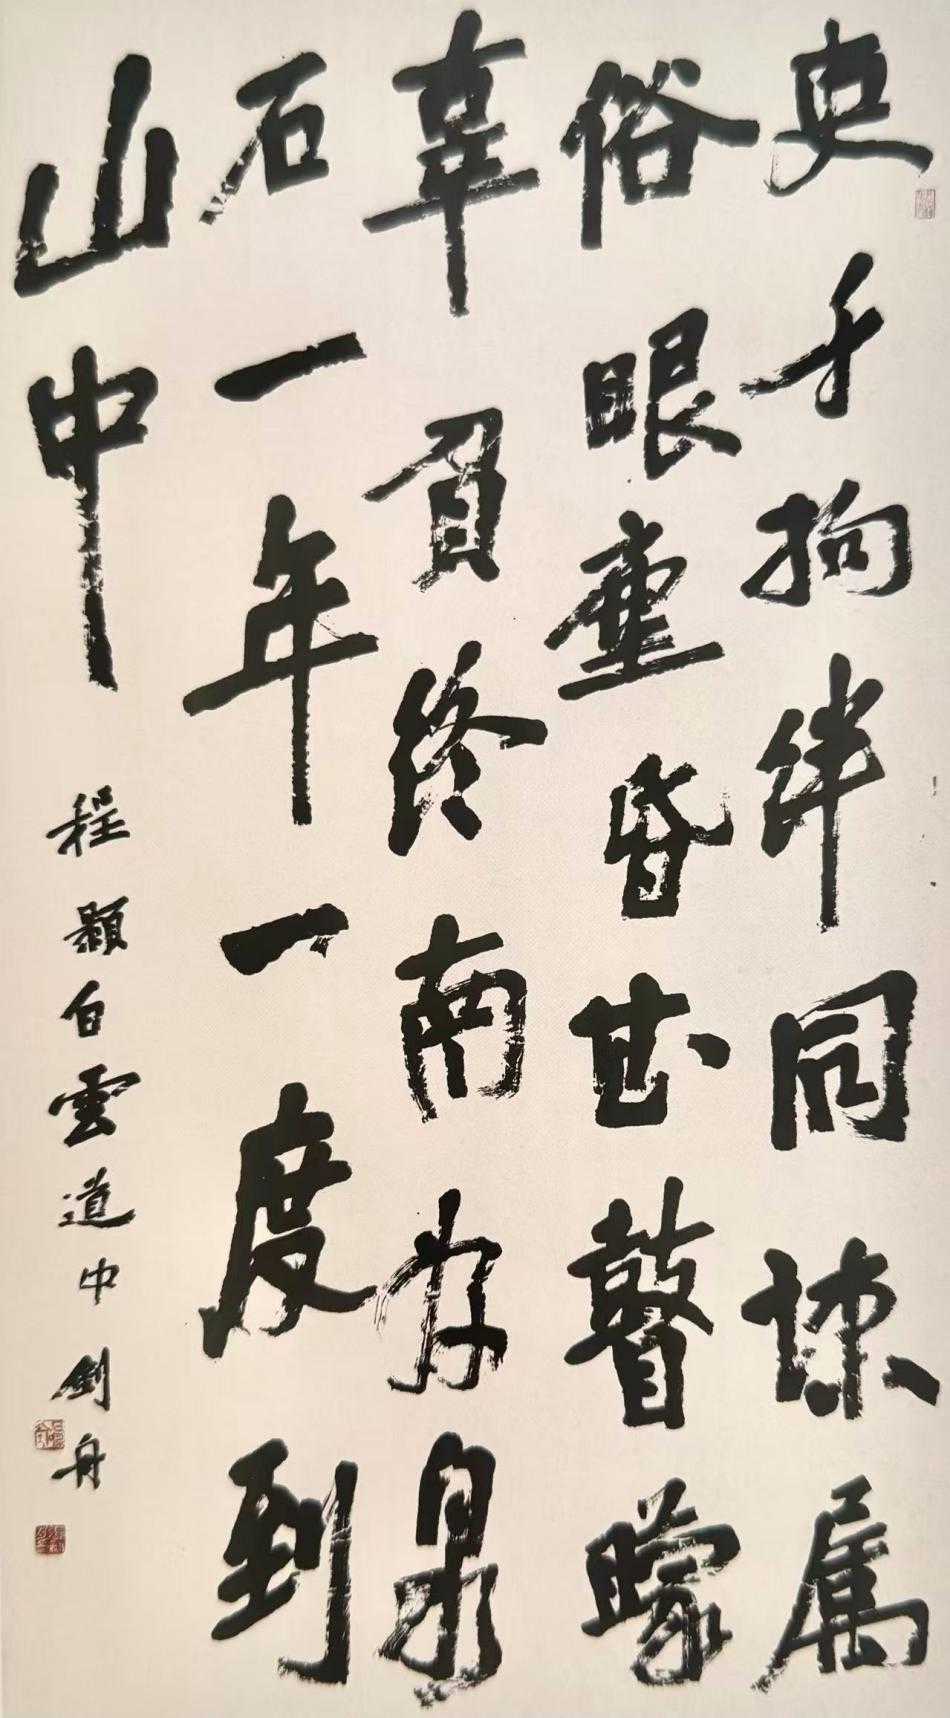 吏身拘絆同疎属
俗眼塵昏甚瞽矇
辜負終南好泉
石一年一度到
山中
程顥白雲道中劍舟